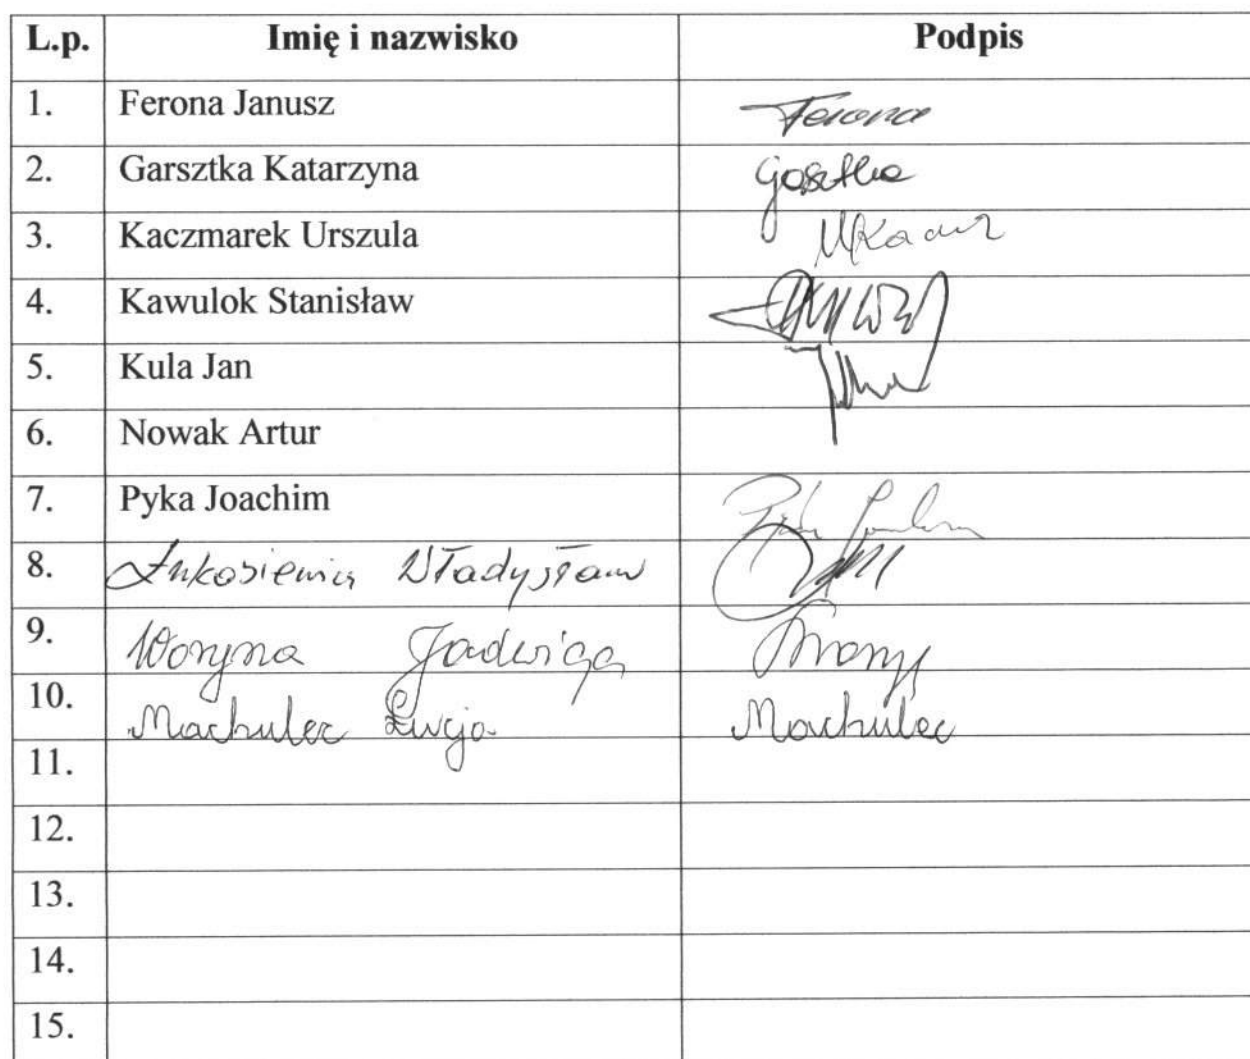 L.p. Imię i nazwisko Podpis
1. Ferona Janusz Ferona
2. Garsztka Katarzyna
3. Kaczmarek Urszula
4. Kawulok Stanisław
5. Kula Jan
6. Nowak Artur
7. Pyka Joachim
8. Łukasiewicz Władysław
9. Woryna Jadwiga
10. Machulec Łucja Machulec
11.
12.
13.
14.
15.